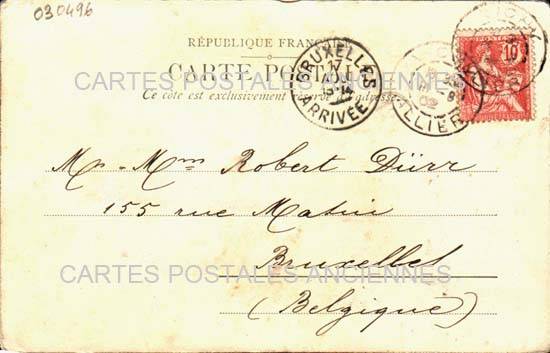 030496
RÉPUBLIQUE FRANÇ
CARTE POSTALE
Ce côté est exclusivement réservé à l'adresse
BRUXELLES
17
ARRIVÉE
ALLIER
10
CARTES POSTALES ANCIENNES
Mr - Mme Robert Dürr
155 rue
Bruxelles
CARTES POSTALES ANCIENNES
(Belgique)